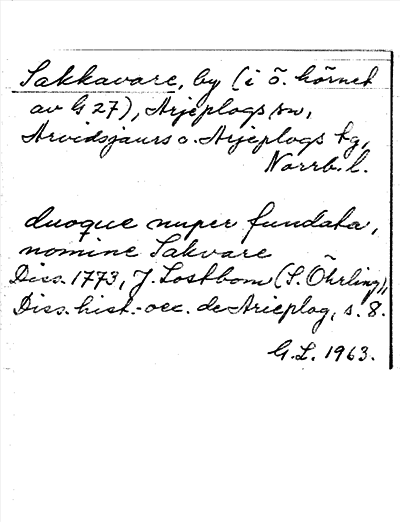 Sakkavare, by (i ö. hörnet
av G 27), Arjeplogs sn,
Arvidsjaurs o. Arjeplogs tg,
Norrb. l.
duoque nuper fundata,
nomine Sakvare
Diss. 1773, J. Lostbom (S. Öhrling),
Diss. hist.-oec. de Arieplog, s. 8.
G. L. 1963.